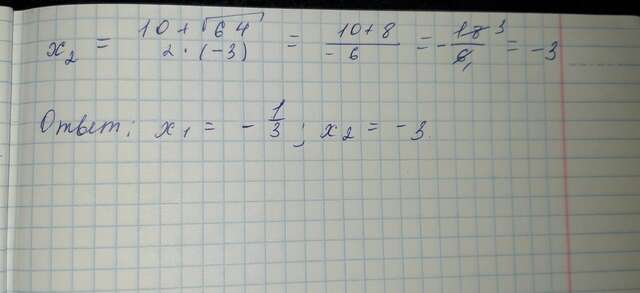 x₂ = (10 + √64) / (2 · (-3)) = (10 + 8) / (-6) = -18/6 = -3
Ответ: x₁ = -1/3; x₂ = -3.